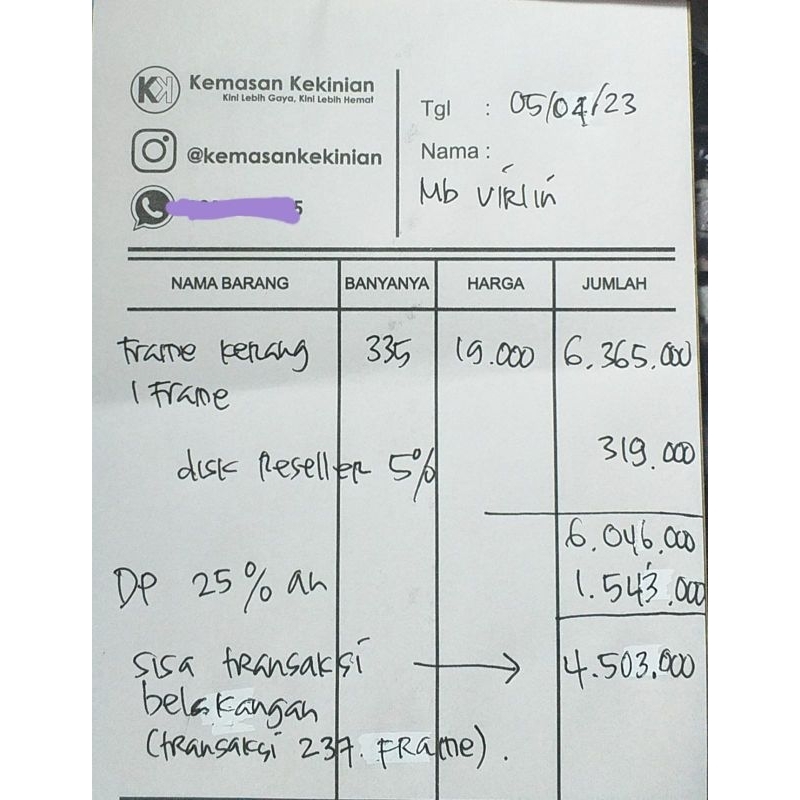 Kemasan Kekinian
Kini Lebih Gaya, Kini Lebih Hemat
@kemasankekinian
5
Tgl : 05/04/23
Nama :
Mb Virlin
NAMA BARANG BANYANYA HARGA JUMLAH
Frame kerang 335 19.000 6.365.000
1 Frame
disk Reseller 5% 319.000
6.046.000
DP 25% an 1.543.000
sisa transaksi → 4.503.000
belakangan
(transaksi 237. FRame).